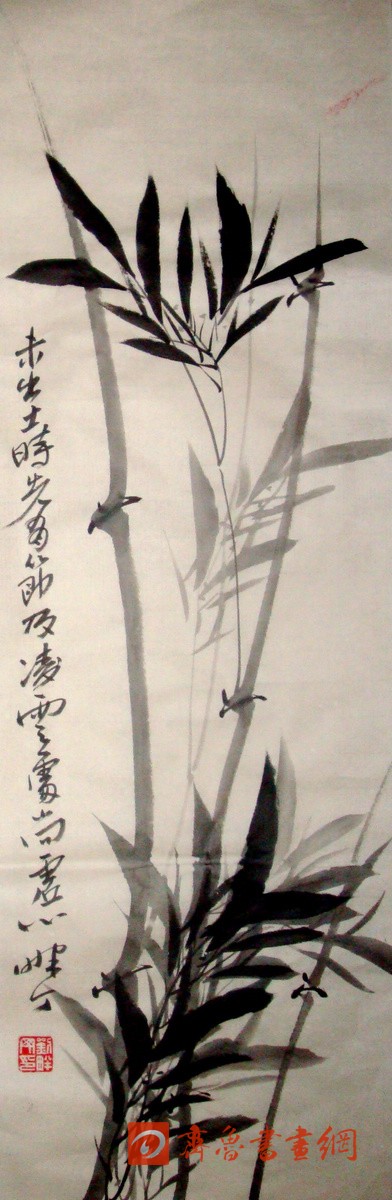 未出土時先有節及凌雲處尚虛心
齊魯書畫網